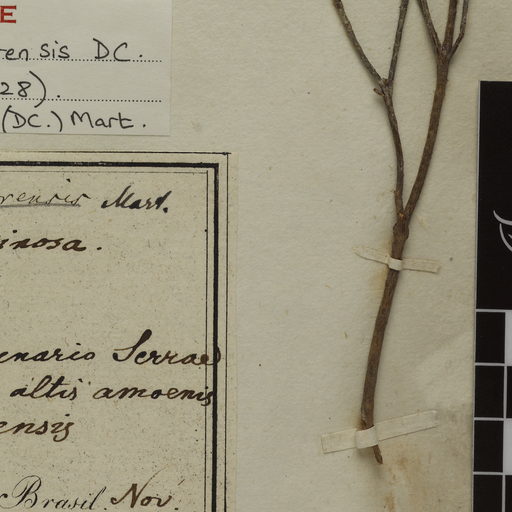 E
rensis DC.
28).
(DC.) Mart.
rensis Mart.
inosa.
enario Serrae
altis amoenis
ensis
Brasil. Nov.